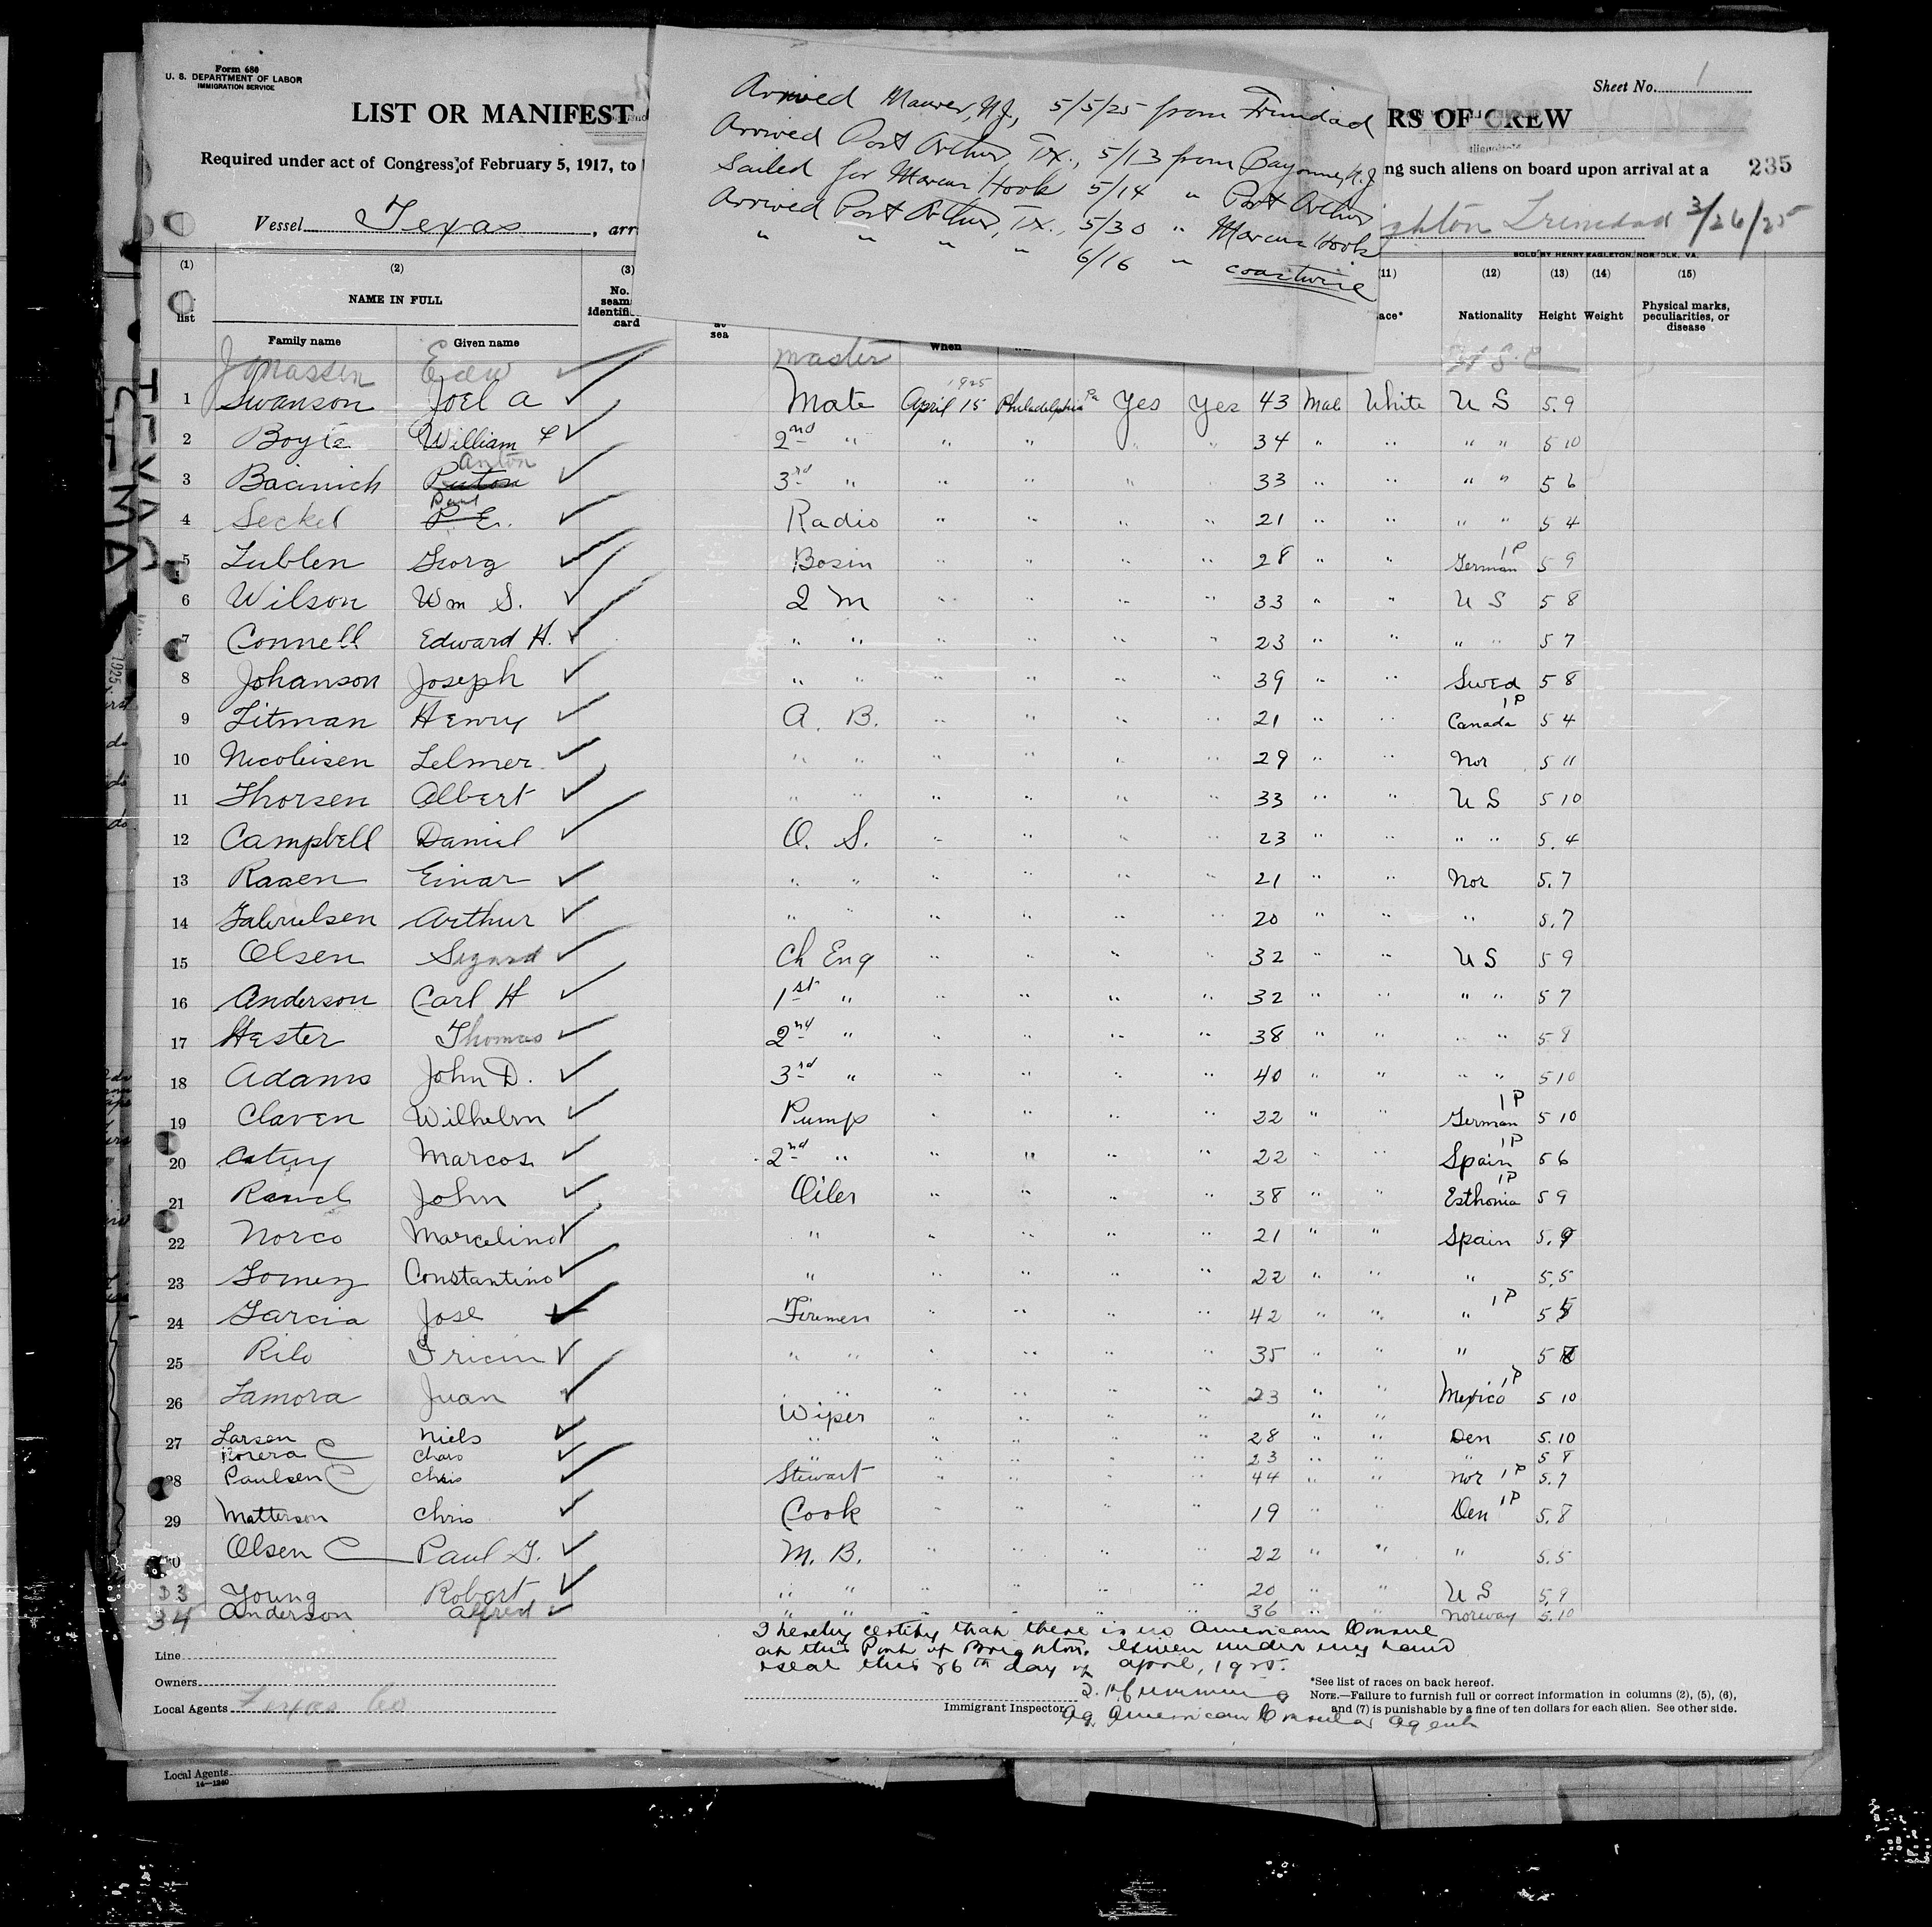 Form 680
U. S. DEPARTMENT OF LABOR
IMMIGRATION SERVICE
Sheet No. 1
LIST OR MANIFEST
RS OF CREW
Required under act of Congress of February 5, 1917, to
ng such aliens on board upon arrival at a
235
Vessel Texas , arr
ghton Trinidad 3/26/25
Arrived Maurer, N.J., 5/5/25 from Trinidad
Arrived Port Arthur, Tx., 5/13 from Bayonne, N.J
Sailed for Marcus Hook 5/14 " Port Arthur
Arrived Port Arthur, Tx., 5/30 " Marcus Hook
" " " " 6/16 " coastwise
SOLD BY HENRY EAGLETON, NORFOLK, VA.
(1) (2) (3) (11) (12) (13) (14) (15)
list NAME IN FULL No. seam identifi card sea ace* Nationality Height Weight Physical marks, peculiarities, or disease
Family name Given name When
Jonassen master
1 Swanson Joel A Mate April 15 1925 Philadelphia Pa Yes Yes 43 Mal White U S 5.9
2 Boyle William 2nd " " " " " 34 " " " " 5 10
3 Bacinich Anton 3rd " " " " " 33 " " " " 5 6
4 Seckel Paul E. Radio " " " " 21 " " " " 5 4
5 Lublen Georg Bosin " " " " 28 " " German 1P 5 9
6 Wilson Wm S. 2 M " " " " 33 " " U S 5 8
7 Connell Edward H. " " " " " " 23 " " " " 5 7
8 Johanson Joseph " " " " " " 39 " " Swed 5 8
9 Litman Henry A. B. " " " " 21 " " Canada 1P 5 4
10 Nicolisen Lelmer " " " " " " 29 " " Nor 5 11
11 Thorsen Albert " " " " " " 33 " " U S 5 10
12 Campbell Daniel O. S. " " " " 23 " " " " 5.4
13 Raaen Einar " " " " " " 21 " " Nor 5.7
14 Gabrielsen Arthur " " " " " " 20 " " " 5.7
15 Olsen Sigurd Ch Eng " " " " 32 " " U S 5 9
16 Anderson Carl H 1st " " " " " 32 " " " " 5 7
17 Hester Thomas 2nd " " " " " 38 " " " " 5 8
18 Adams John D. 3rd " " " " " 40 " " " " 5 10
19 Claven Wilhelm Pump " " " " 22 " " German 1P 5 10
20 Marcos 2nd " " " " " 22 " " Spain 1P 5 6
21 John Oiler " " " " 38 " " Esthonia 1P 5 9
22 Norco Marcelino " " " " " 21 " " Spain 5.9
23 Gomez Constantino " " " " " 22 " " " 5.5
24 Garcia Jose Firemen " " " " 42 " " " 1P 5
25 Rilo " " " " " " 35 " " " 5
26 Zamora Juan " " " " " " 23 " " Mexico 1P 5 10
Wiper
27 Larsen Niels " " " " " 28 " " Den 5.10
Chas " " " " " 23 " " " 5 8
28 Paulsen C Chris Stewart " " " " 44 " " Nor 1P 5.7
29 Matterson Chris Cook " " " " 19 " " Den 1P 5.8
30 Olsen C Paul G. M. B. " " " " 22 " " " 5.5
33 Young Robert " " " " " " 20 " " U S 5.9
34 Anderson Alfred " " " " " " 36 " " Norway 5.10
I hereby certify that there is no American Consul
at this Port of Brighton. Given under my hand
& seal this 26th day of April, 1925.
Line
Owners
Local Agents Texas Co
Immigrant Inspector
Ag. American Consular Agent
*See list of races on back hereof.
NOTE.—Failure to furnish full or correct information in columns (2), (5), (6),
and (7) is punishable by a fine of ten dollars for each alien. See other side.
Local Agents
14—1240